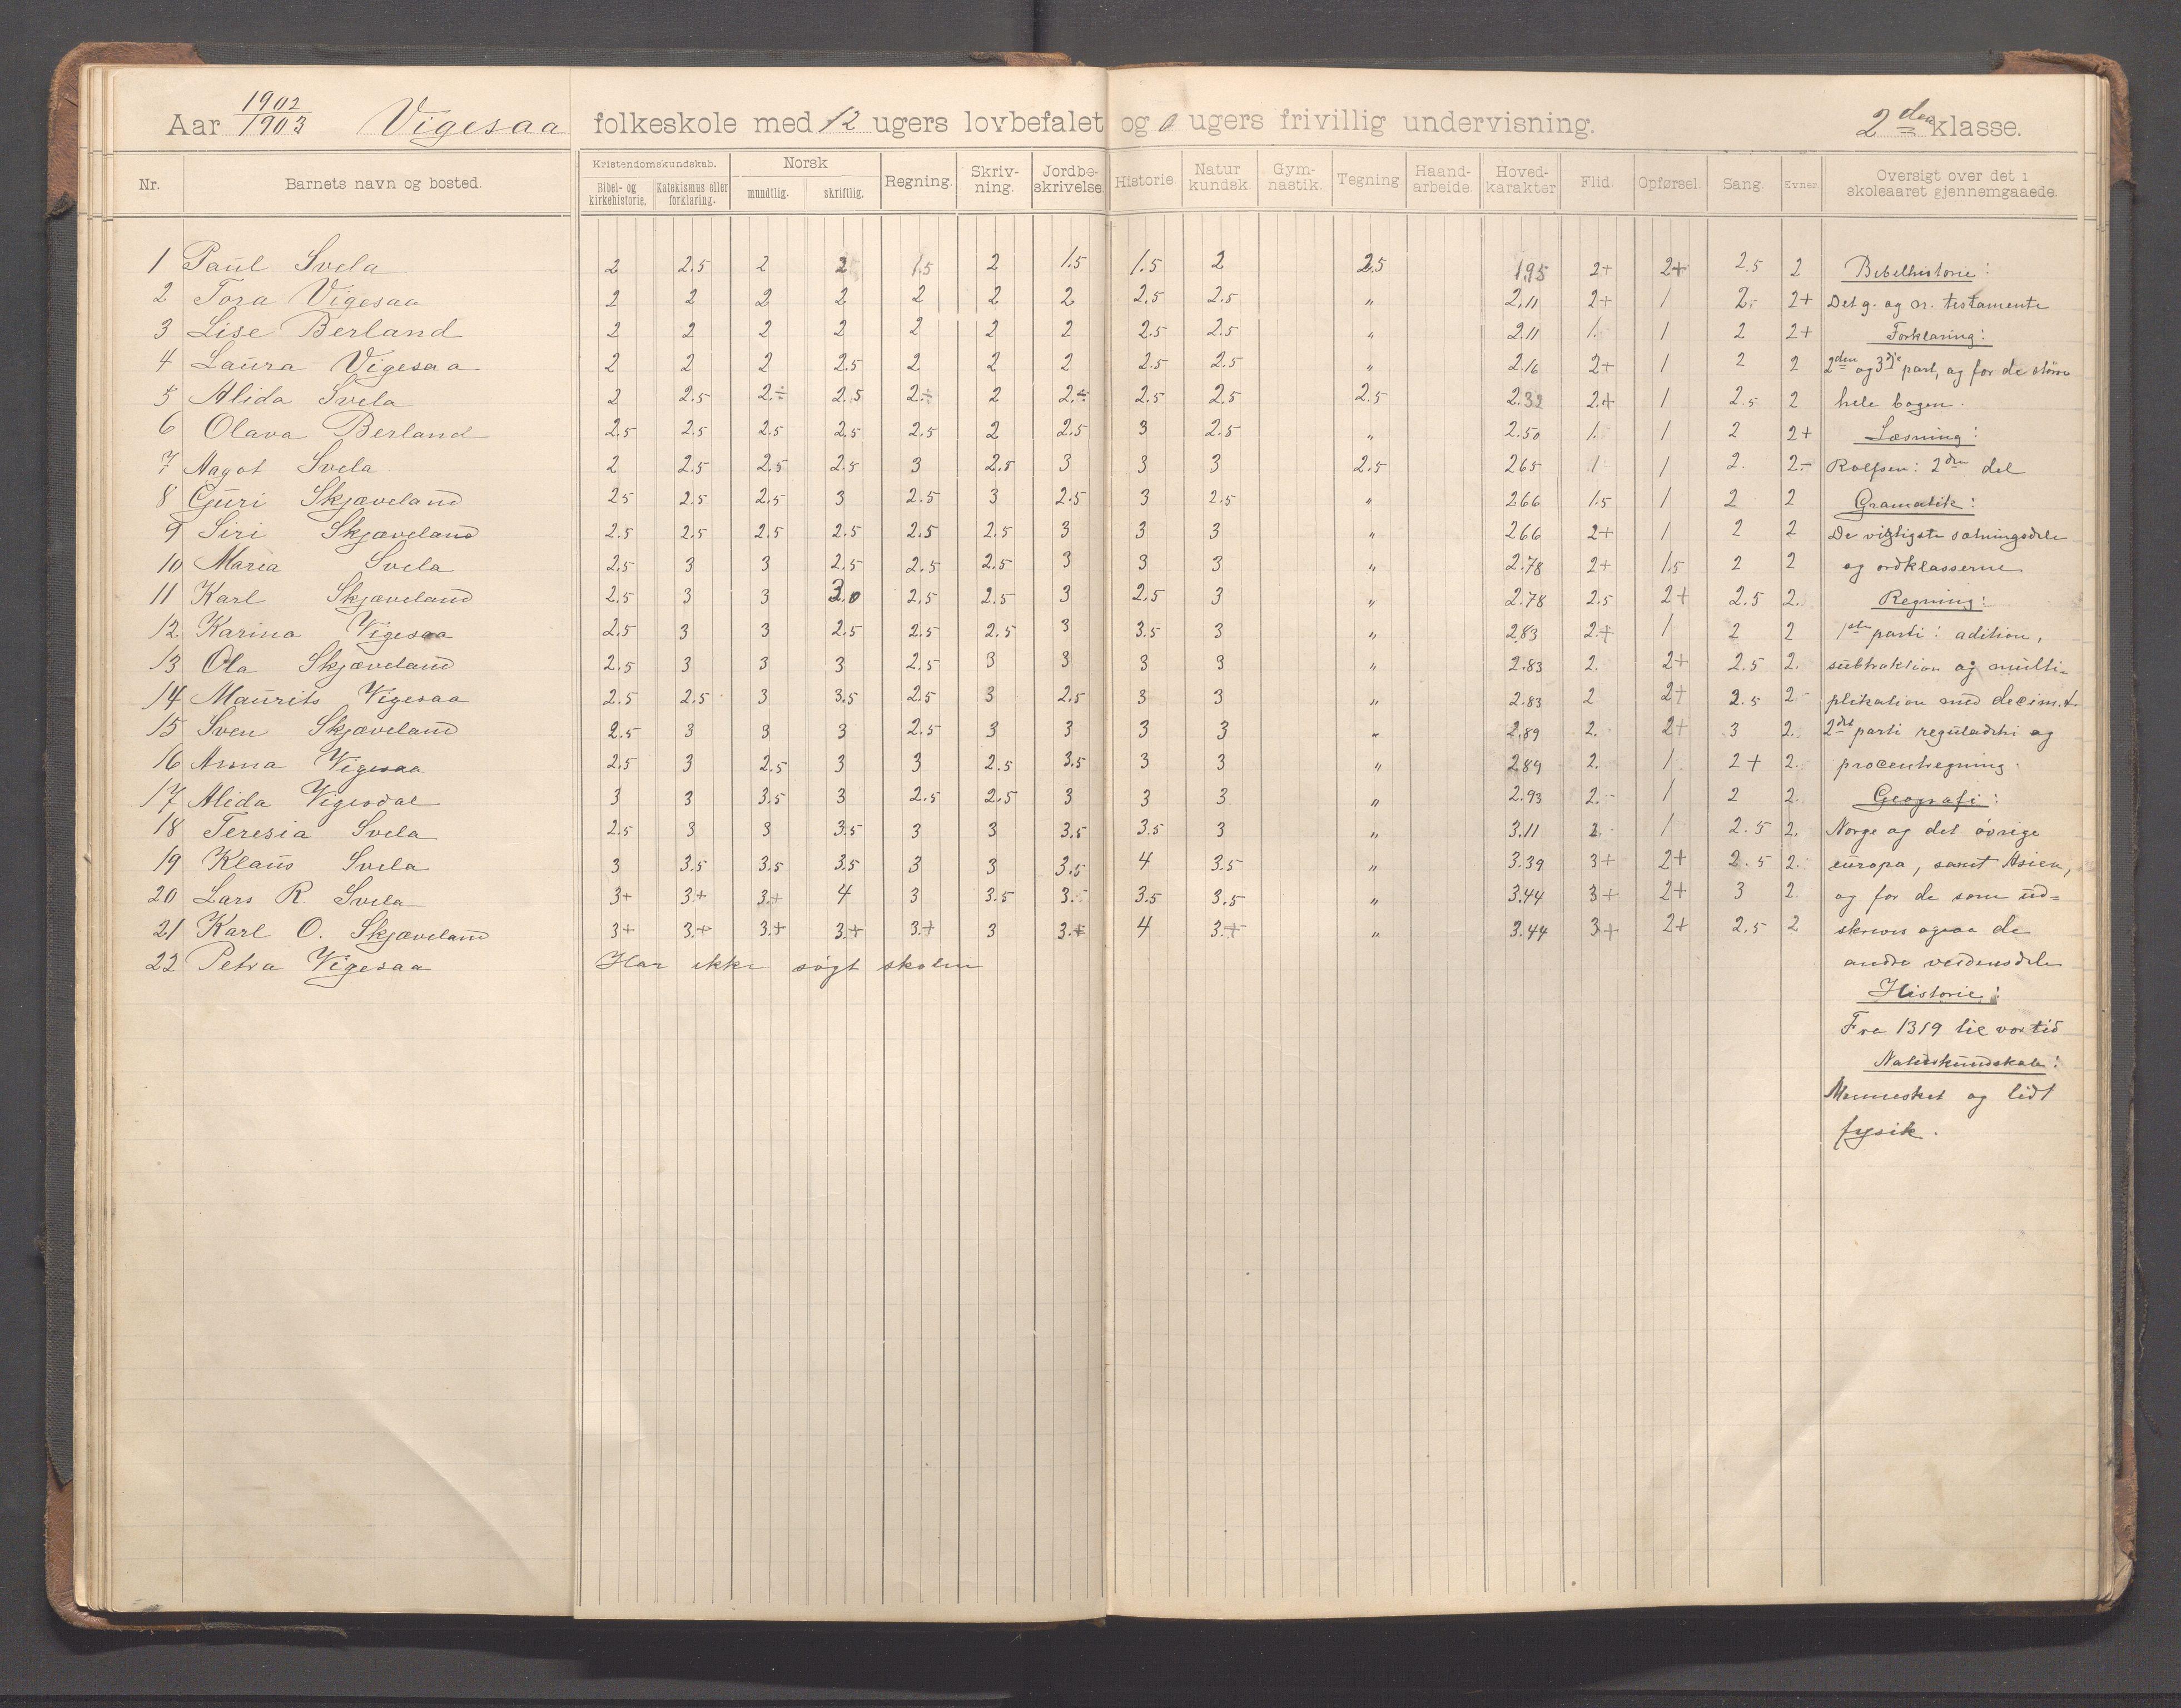 Aar 1902/1903 Vigesaa folkeskole med 12 ugers lovbefalet og 0 ugers frivillig undervisning. 2den klasse.
Nr. Barnets navn og bosted. Kristendomskundskab. Bibel- og kirkehistorie. Katekismus eller forklaring. Norsk mundtlig. skriftlig. Regning. Skriv-ning. Jordbe-skrivelse. Historie. Natur kundsk. Gym-nastik. Tegning Haand-arbeide. Hoved-karakter Flid. Opførsel. Sang. Evner. Oversigt over det i skoleaaret gjennemgaaede.
1 Paul Svela 2 2.5 2 2 1.5 2 1.5 1.5 2 2.5 1.95 2+ 2+ 2.5 2 Bibelhistorie:
2 Tora Vigesaa 2 2 2 2 2 2 2 2.5 2.5 " 2.11 2+ 1 2.- 2+ Det g. og n. testamente
3 Lise Berland 2 2 2 2 2 2 2 2.5 2.5 " 2.11 1. 1 2 2+ Forklaring:
4 Laura Vigesaa 2 2 2 2.5 2 2 2 2.5 2.5 " 2.16 2+ 1 2 2 2den og 3dje part, og for de større
5 Alida Svela 2 2.5 2.÷ 2.5 2.÷ 2 2.÷ 2.5 2.5 2.5 2.32 2.+ 1 2.5 2 hele bogen.
6 Olava Berland 2.5 2.5 2.5 2.5 2.5 2 2.5 3 2.5 " 2.50 1. 1 2 2+ Læsning:
7 Nagot Svela 2 2.5 2.5 2.5 3 2.5 3 3 3 2.5 2.65 1 1 2. 2.- Rolfsen: 2den del
8 Guri Skjæveland 2.5 2.5 2.5 3 2.5 3 2.5 3 2.5 " 2.66 1.5 1 2 2 Gramatik:
9 Siri Skjæveland 2.5 2.5 2.5 2.5 2.5 2.5 3 3 3 " 2.66 2+ 1 2 2 De vigtigste sætningsdele
10 Maria Svela 2.5 3 3 2.5 2.5 2.5 3 3 3 " 2.78 2+ 1.5 2 2 og ordklasserne
11 Karl Skjæveland 2.5 3 3 3.0 2.5 2.5 3 2.5 3 " 2.78 2.5 2+ 2.5 2. Regning:
12 Karina Vigesaa 2.5 3 3 2.5 2.5 2.5 3 3.5 3 " 2.83 2.+ 1 2 2 1ste parti: adition,
13 Ola Skjæveland 2.5 3 3 3 2.5 3 3 3 3 " 2.83 2. 2+ 2.5 2. subtraktion og multi-
14 Maurits Vigesaa 2.5 2.5 3 3.5 2.5 3 2.5 3 3 " 2.83 2 2+ 2.5 2- plikation med decim.t.
15 Sven Skjæveland 2.5 3 3 3 2.5 3 3 3 3 " 2.89 2. 2+ 3 2. 2det parti reguladetri og
16 Anna Vigesaa 2.5 3 2.5 3 3 2.5 3.5 3 3 " 2.89 2. 1 2+ 2. procentregning.
17 Alida Vigesdal 3 3 3.5 3 2.5 2.5 3 3 3 " 2.93 2.- 1 2 2. Geografi:
18 Teresia Svela 2.5 3 3 3.5 3 3 3.5 3.5 3 " 3.11 2.- 1 2.5 2. Norge og det øvrige
19 Klaus Svela 3 3.5 3.5 3.5 3 3 3.5 4 3.5 " 3.39 3+ 2+ 2.5 2. europa, samt Asien,
20 Lars R. Svela 3+ 3+ 3.+ 4 3 3.5 3.5 3.5 3.5 " 3.44 3+ 2+ 3 2. og for de som ud=
21 Karl O. Skjæveland 3+ 3.+ 3.+ 3.+ 3.+ 3 3.+ 4 3.+ " 3.44 3+ 2+ 2.5 2 skrives ogsaa de
22 Petra Vigesaa Har ikke søgt skolen andre verdensdele
Historie:
Fra 1319 til vor tid
Naturkundskab:
Mennesket og lidt
fysik.